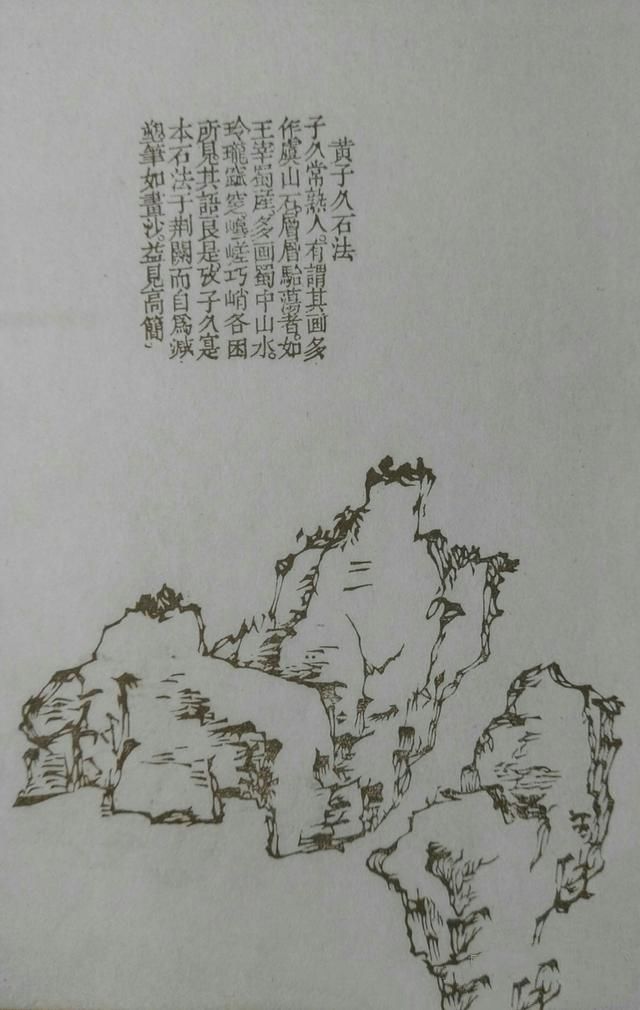 黃子久石法
子久常熟人。有謂其画多
作虞山石。層層駘蕩者。如
王宰蜀産。多画蜀中山水。
玲瓏窳窆。巉嵯巧峭各因
所見其語良是。故子久寔
本石法于荆關而自爲減
塑筆如畫沙。益見高簡。